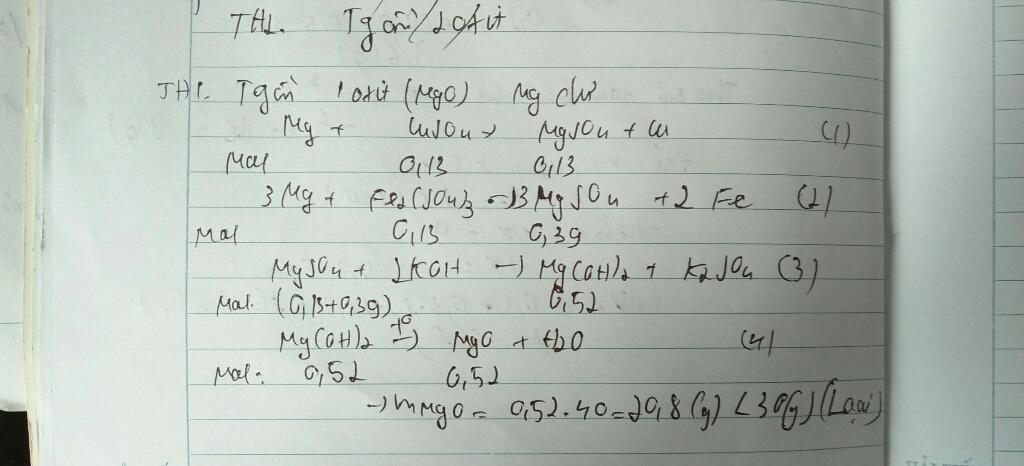 TH2. T gồm 2 oxit
TH1. T gồm 1 oxit (MgO) Mg chỉ
Mg + CuSO4 → MgSO4 + Cu (1)
Mol 0,13 0,13
3Mg + Fe2(SO4)3 → 3MgSO4 + 2Fe (2)
Mol 0,13 0,39
MgSO4 + 2KOH → Mg(OH)2 + K2SO4 (3)
Mol. (0,13+0,39) 0,52
Mg(OH)2 t° → MgO + H2O (4)
Mol: 0,52 0,52
→ mMgO = 0,52.40=20,8(g) <30(g) (Loại)